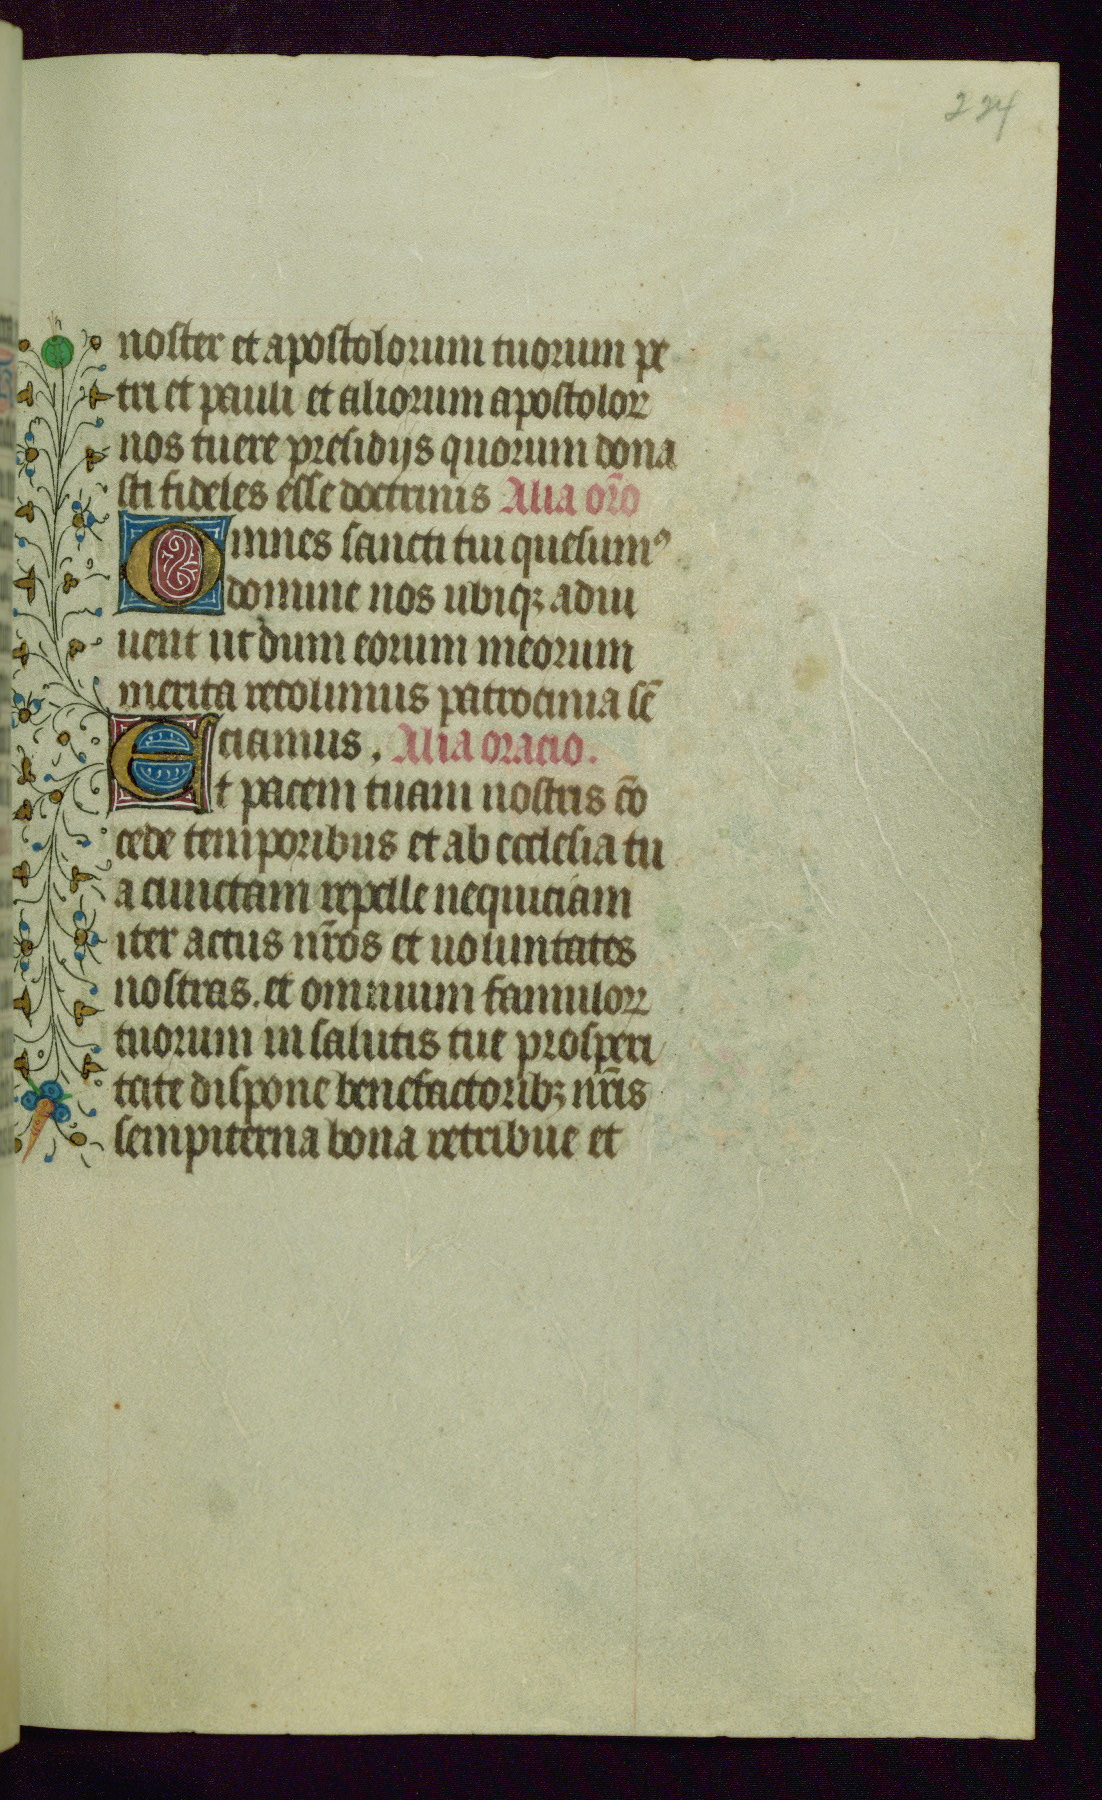 224
noster et apostolorum tuorum pe
tri et pauli et aliorum apostolorꝝ
nos tuere presidijs quorum dona
sti fideles esse doctrinis Alia or̄o
Omnes sancti tui quesumꝰ
domine nos ubiqꝫ adiu
uent ut dum eorum meorum
merita recolimus patrocinia sē
ciamus. Alia oracio.
Et pacem tuam nostris cō
cede temporibus et ab ecclesia tu
a cunctam repelle nequiciam
iter actus nr̄os et uoluntates
nostras. et omnium famulorꝝ
tuorum in salutis tue prosperi
tate dispone benefactoribꝫ nr̄is
sempiterna bona retribue et